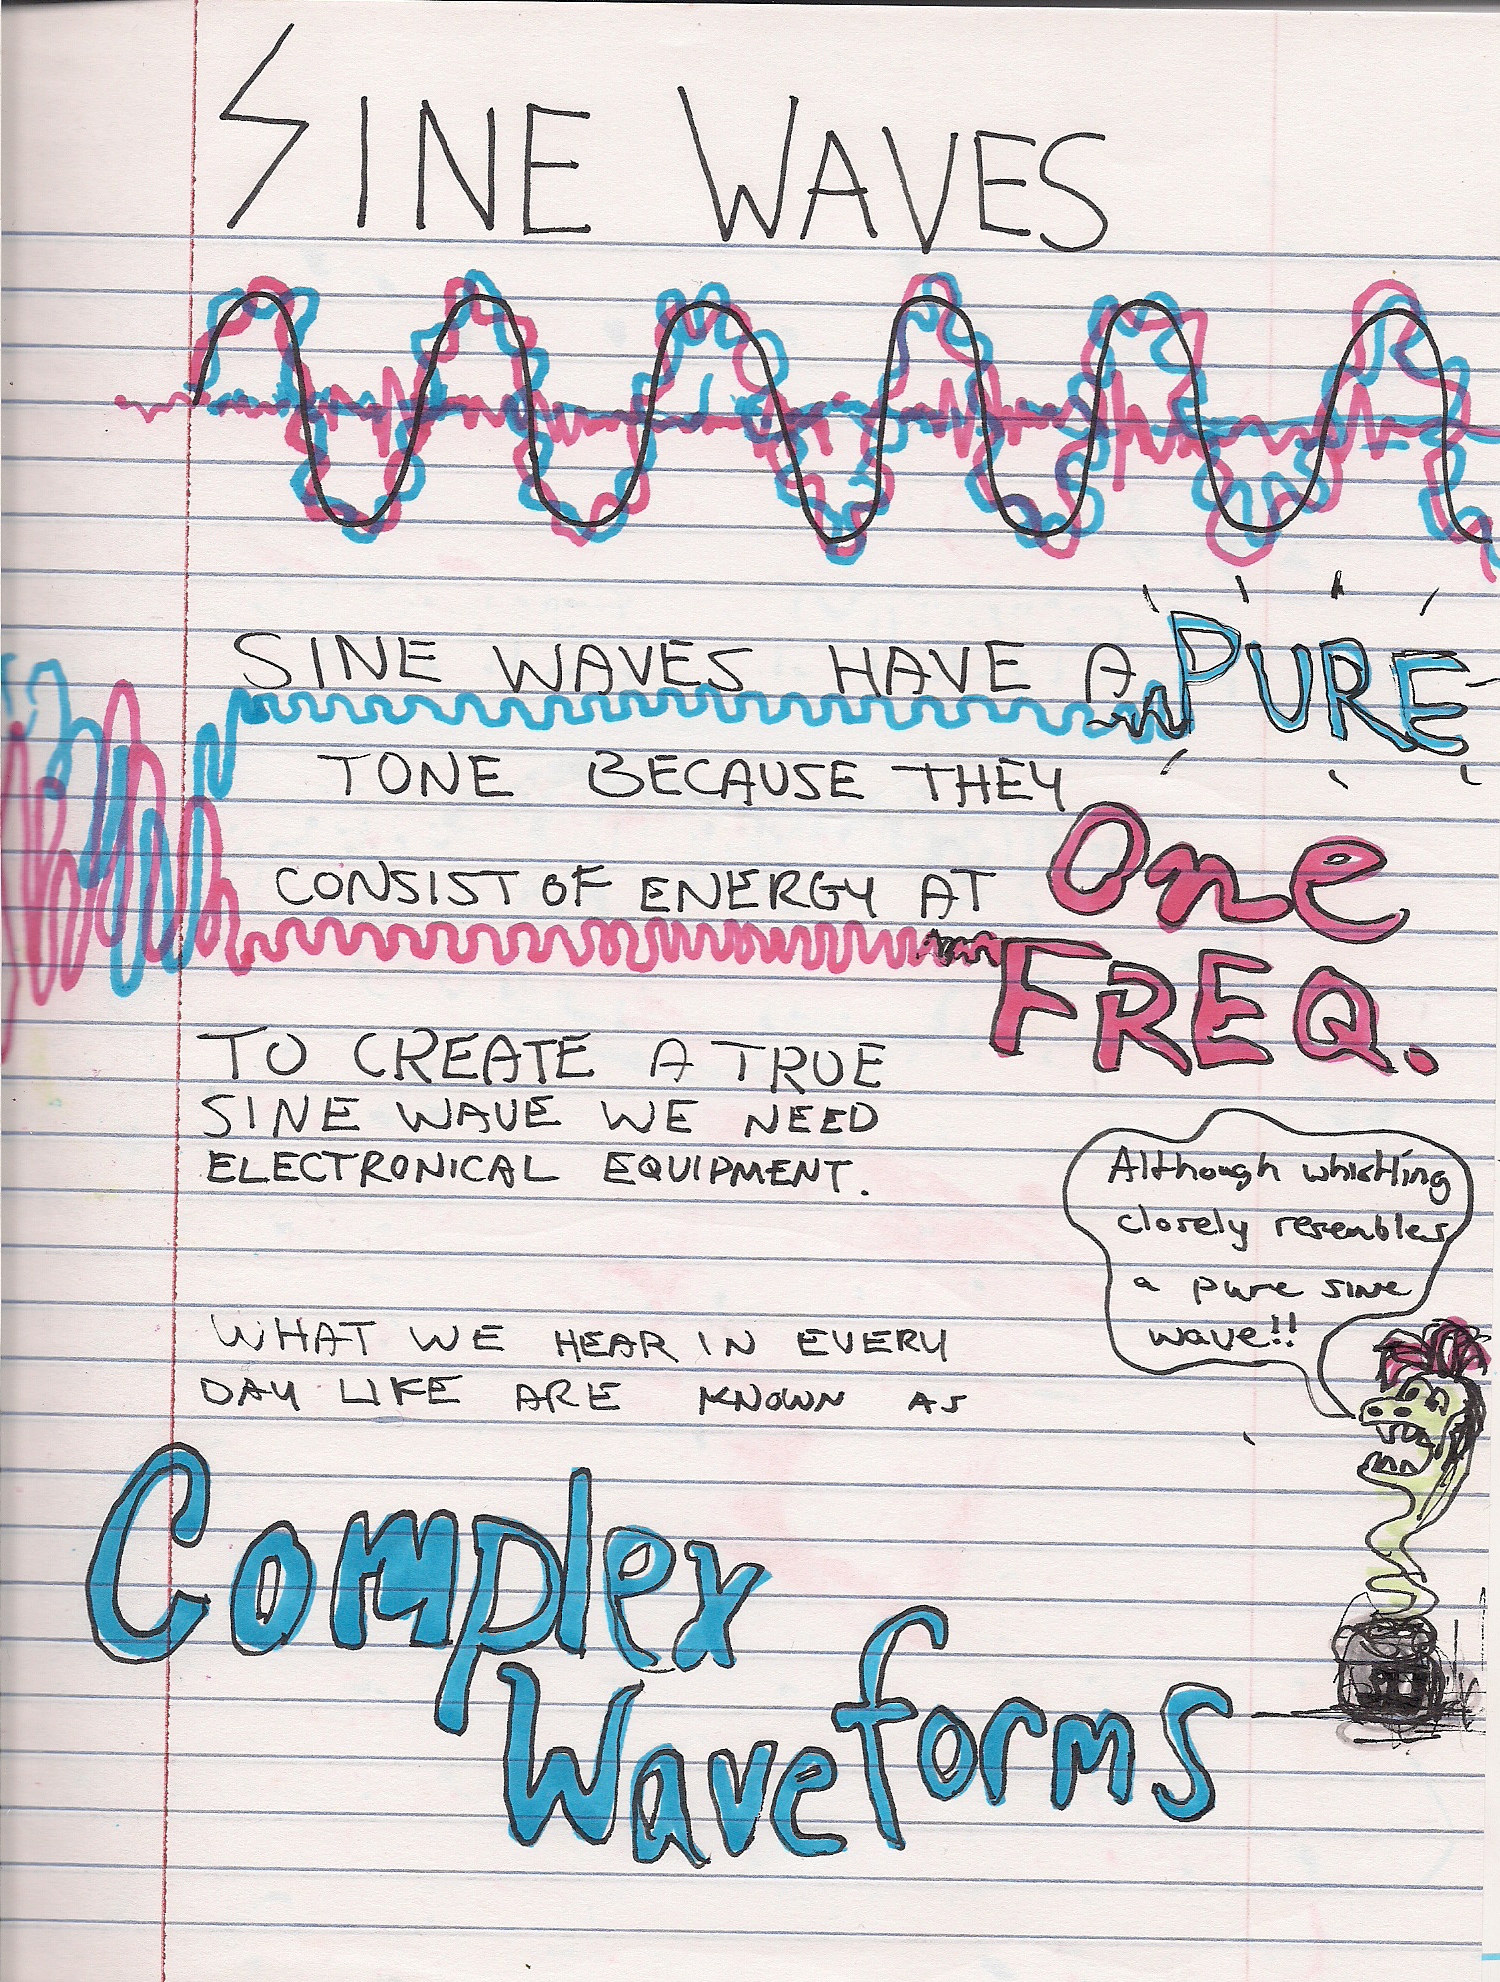 SINE WAVES
SINE WAVES HAVE A PURE
TONE BECAUSE THEY
CONSIST OF ENERGY AT One
FREQ.
TO CREATE A TRUE
SINE WAVE WE NEED
ELECTRONICAL EQUIPMENT.
Although whistling
closely resembles
a pure sine
wave!!
WHAT WE HEAR IN EVERY
DAY LIKE ARE KNOWN AS
Complex
Waveforms